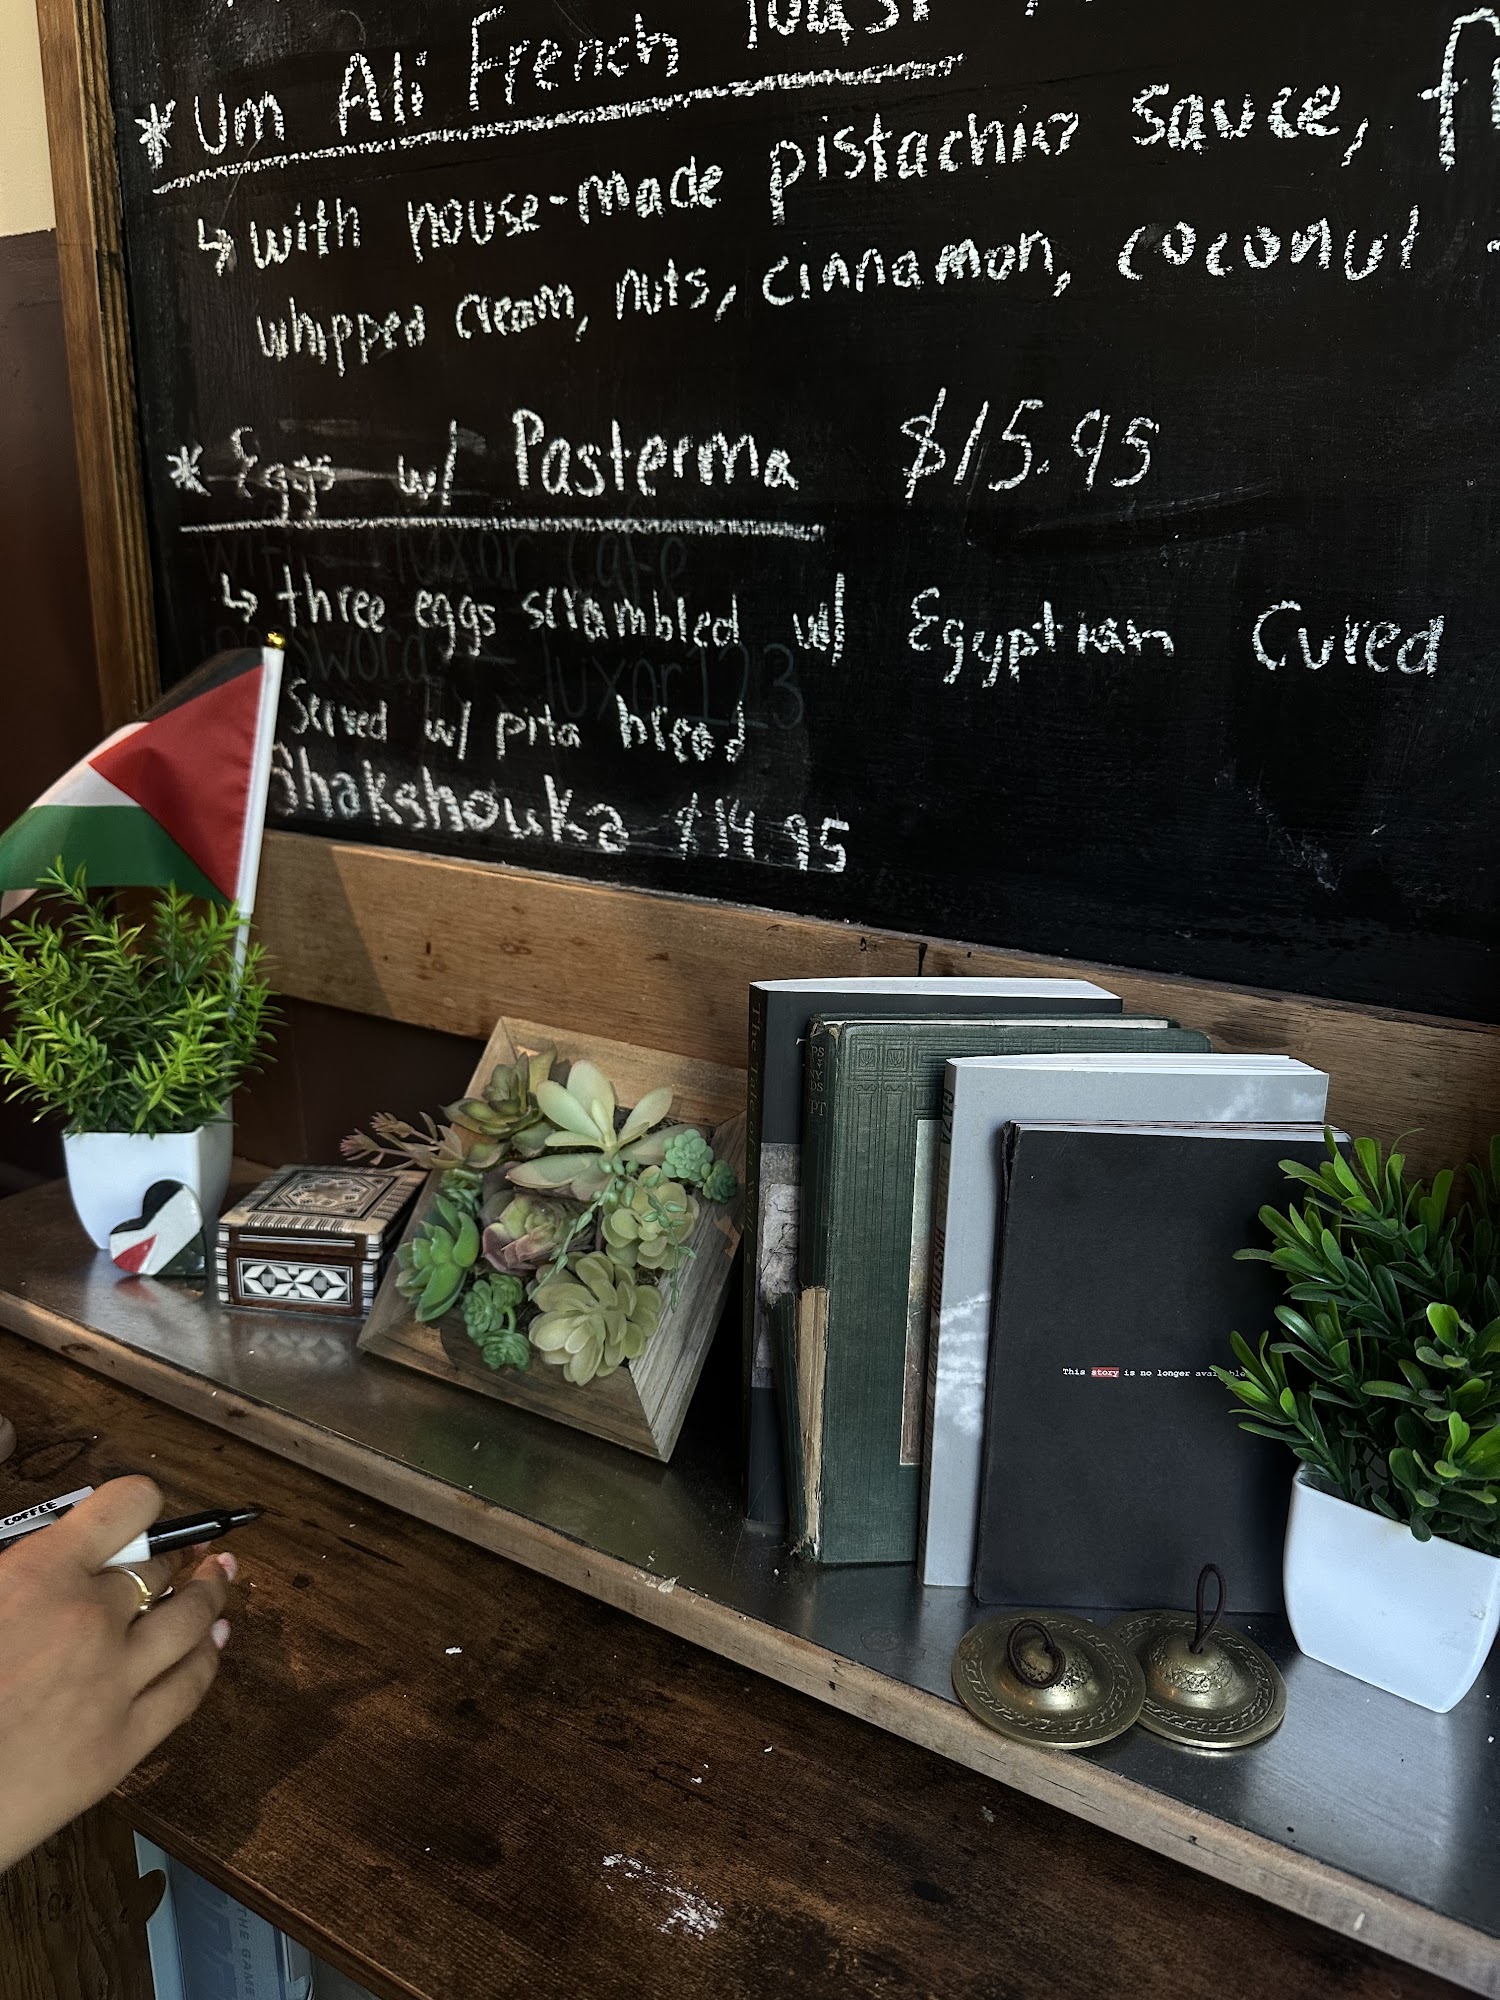 * Um Ali French Toast
↳ with house-made pistachio sauce,
whipped cream, nuts, cinnamon, coconut
* Eggs w/ Pasterma $15.95
wifi - luxor cafe
↳ three eggs scrambled w/ Egyptian Cured
password - luxor123
Served w/ pita bread
Shakshouka $14.95
The Tale of a Wall
GAZA
This story is no longer available
COFFEE
THE GAME